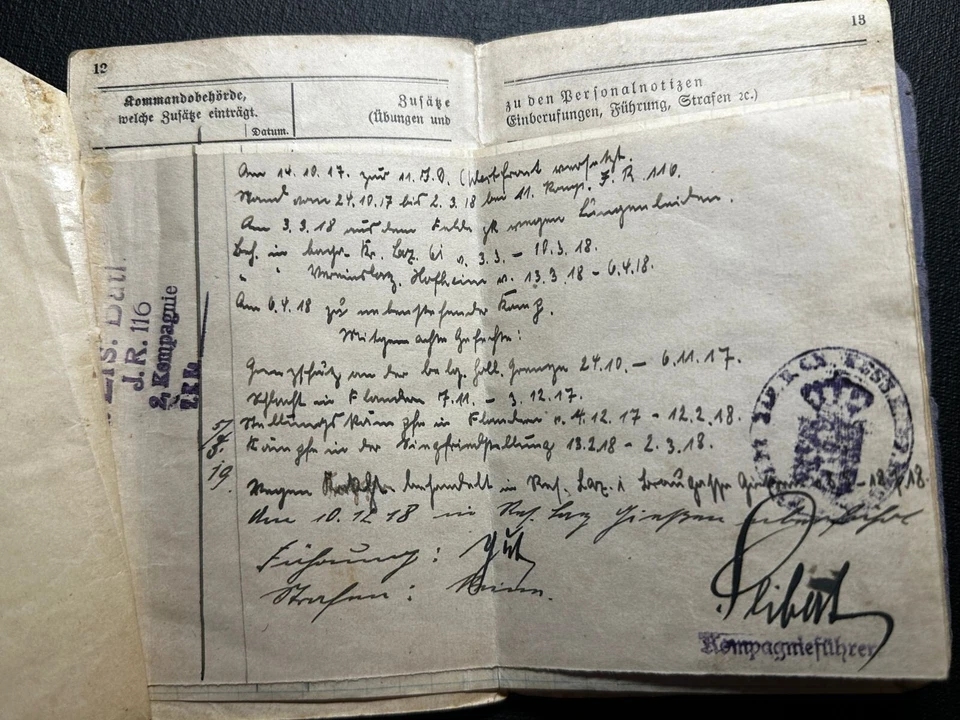 12
13
Kommandobehörde,
welche Zusätze einträgt.
Datum.
Zusätze
(Übungen und
zu den Personalnotizen
Einberufungen, Führung, Strafen ꝛc.)
Am 14.10.17. zur 11. J.D. (Westfront versetzt.
Stand vom 24.10.17 bis 2.3.18 bei 11. Komp. J. R. 110.
Am 3.3.18 aus dem Felde zk wegen Lungenleiden.
Beh. in bayr. Kr. Laz. 61 v. 3.3. - 10.3.18.
" " Vereinslaz. Hofheim v. 13.3.18 - 6.4.18.
Am 6.4.18 zu
Mitgemachte Gefechte:
Grenzschutz an der belg. holl. Grenze 24.10. - 6.11.17.
Schlacht in Flandern 7.11. - 3.12.17.
Stellungskämpfe in Flandern v. 4.12.17 - 12.2.18.
Kämpfe in der Siegfriedstellung 13.2.18 - 2.3.18.
Wegen behandelt in Res. Laz. I
Am 10.12.18 in Res. Laz Gießen
Führung: Gut
Strafen: Keine.
Ers. Batl.
J.R. 116
2. Kompagnie
19.
Kompagnieführer